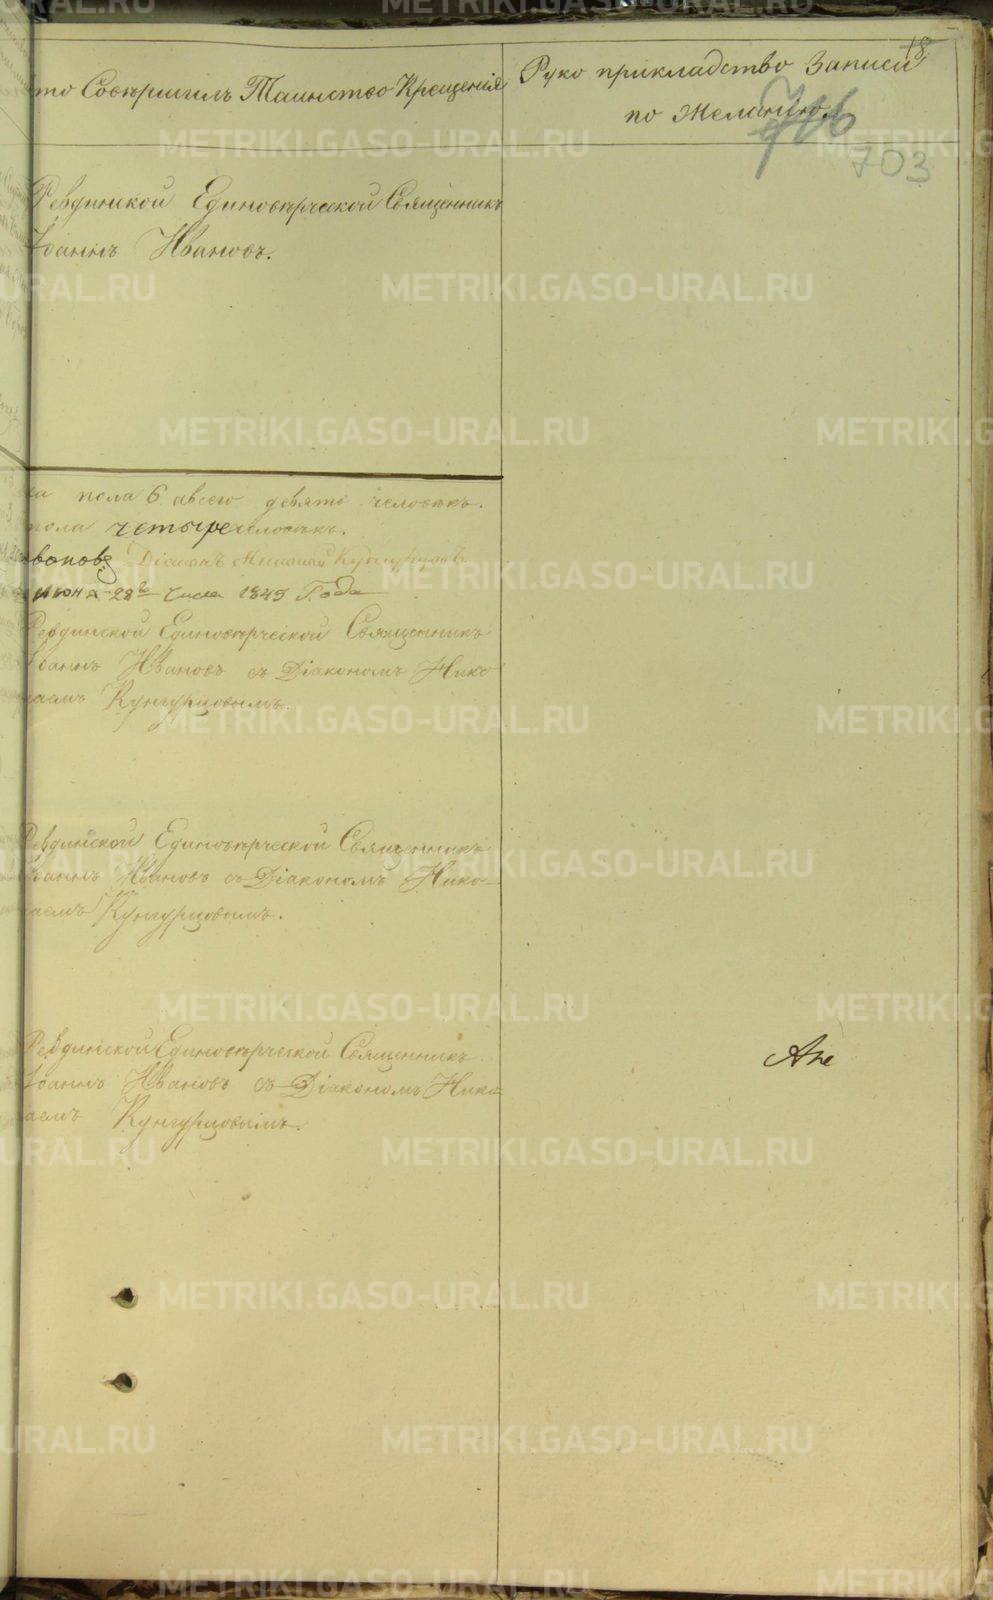 18
то Совершилъ Таинство Крещенія
Руко прикладство Записи
по Желанію.
703
Ревдинской Единовѣрческой Священникъ
Іоаннъ Ивановъ.
ка пола 6 авсего девять человѣкъ.
пола четыре человѣкъ.
вановъ Діаконъ Николай Кунгурцовъ
июня 28го числа 1845 Года
Ревдинской Единовѣрческой Священникъ
Іоаннъ Ивановъ съ Діакономъ Нико
лаемъ Кунгурцовымъ.
Ревдинской Единовѣрческой Священникъ
Іоаннъ Ивановъ съ Діакономъ Нико-
лаемъ Кунгурцовымъ.
Ревдинской Единовѣрческой Священникъ
Іоаннъ Ивановъ съ Діакономъ Нико
лаемъ Кунгурцовымъ.
METRIKI.GASO-URAL.RU